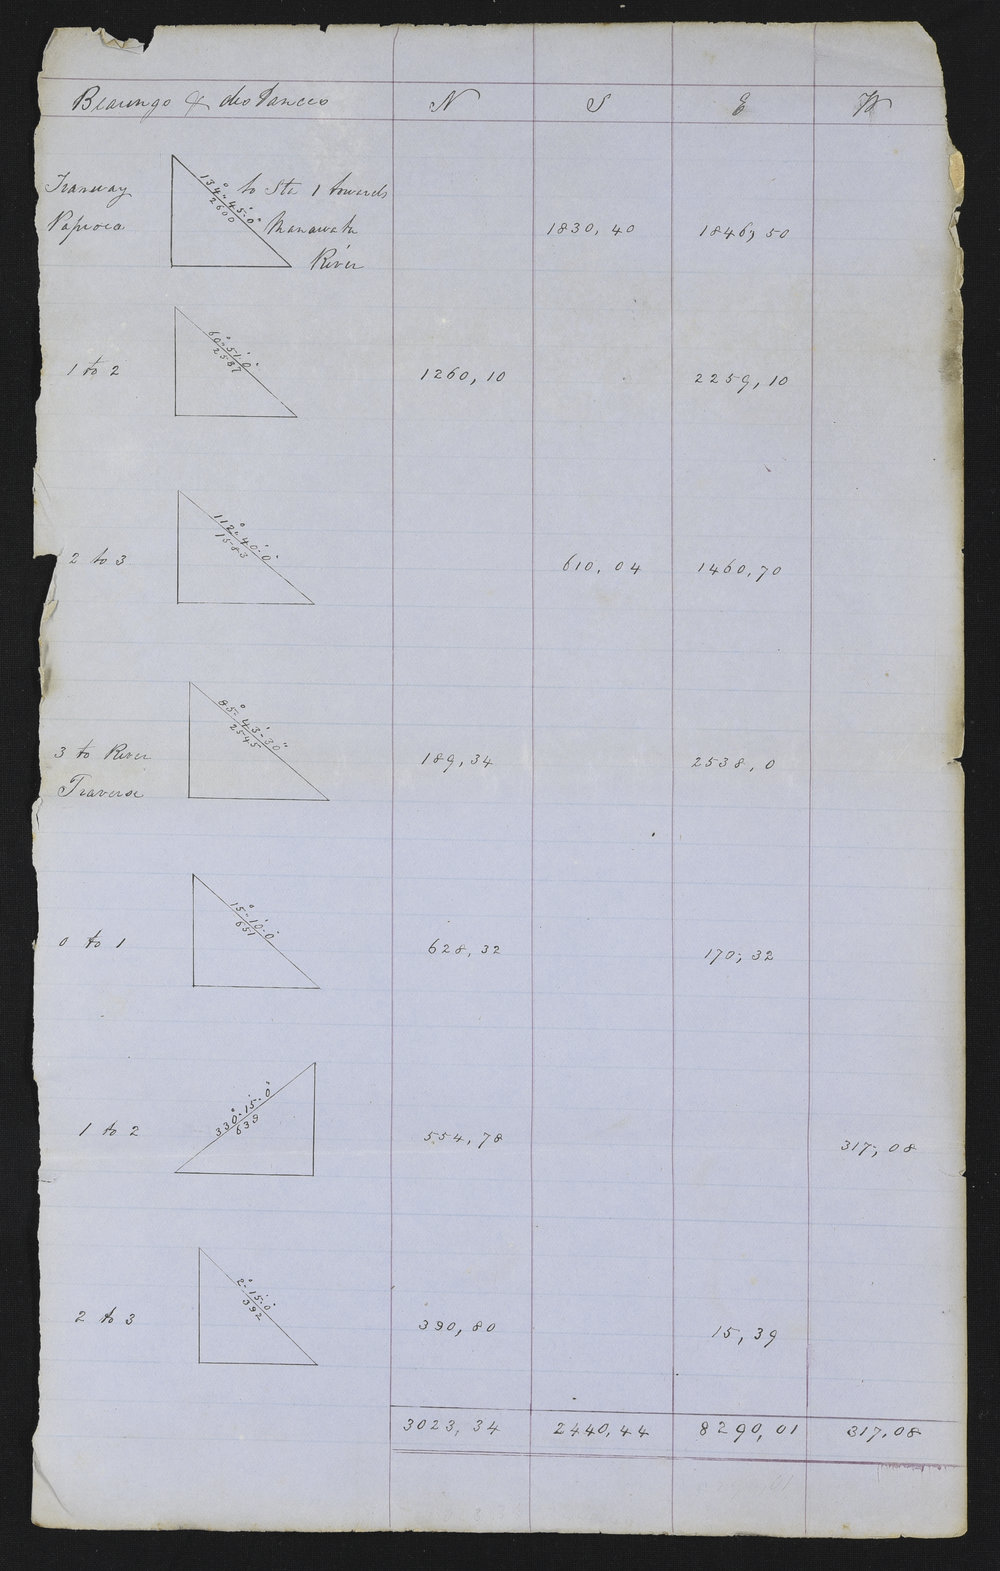 Bearings & distances N S E W
Tramway 134°-45'-0" to Sta 1 towards
Paproea 2600 Manawatu 1830,40 1846,50
River
60°-51'-0"
1 to 2 2587 1260,10 2259,10
112°-40'-0"
2 to 3 1583 610,04 1460,70
85°-43'-30"
3 to River 2545 189,34 2538,0
Traverse
15°-10'-0"
0 to 1 651 628,32 170,32
330°-15'-0"
1 to 2 639 554,78 317,08
2°-15'-0"
2 to 3 392 390,80 15,39
3023,34 2440,44 8290,01 317,08